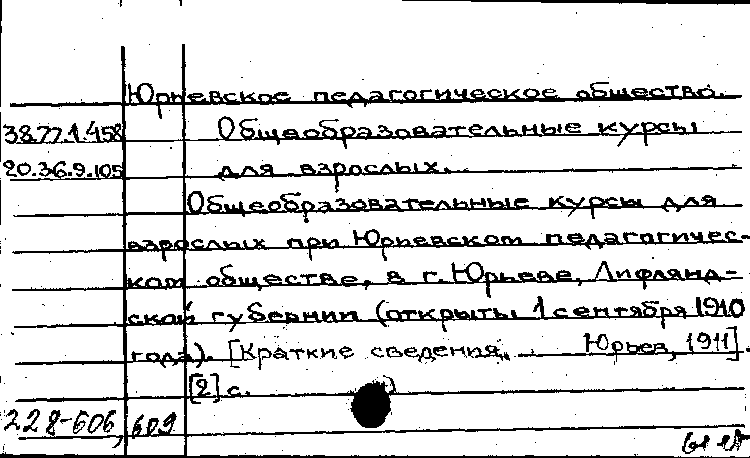 Юрьевское педагогическое общество.
38.77.1.458 Общеобразовательные курсы
20.36.9.105 для взрослых.
Общеобразовательные курсы для
взрослых при Юрьевском педагогичес-
ком обществе, в г. Юрьеве, Лифлянд-
ской губернии (открыты 1 сентября 1910
года). [Краткие сведения. Юрьев, 1911].
[2] с.
228-606, 609